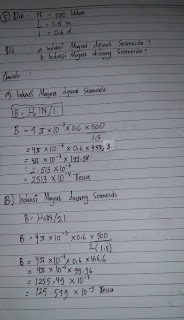 ⑤ Dik : N = 500 lilitan
L = 1.5 m
I = 0.6 A
Dit : a. Induksi Magnet dipusat Solenoida ?
b. Induksi Magnet diujung Solenoida ?
a) Induksi Magnet dipusat Solenoida
B = μ₀IN/l
B = 4π × 10⁻⁷ × 0.6 × 500
1.5
= 4π × 10⁻⁷ × 0.6 × 333,3
= 4π × 10⁻⁷ × 199.98
= 2.513 × 10⁻⁴
= 2513 × 10⁻⁴ Tesla
B) Induksi Magnet diujung Solenoida
B = μ₀IN / 2l
B = 4π × 10⁻⁷ × 0.6 × 500
2(1.5)
B = 4π × 10⁻⁷ × 0.6 × 166,6
= 4π × 10⁻⁷ × 99.96
= 1255,49 × 10⁻⁷
= 125.549 × 10⁻³ Tesla